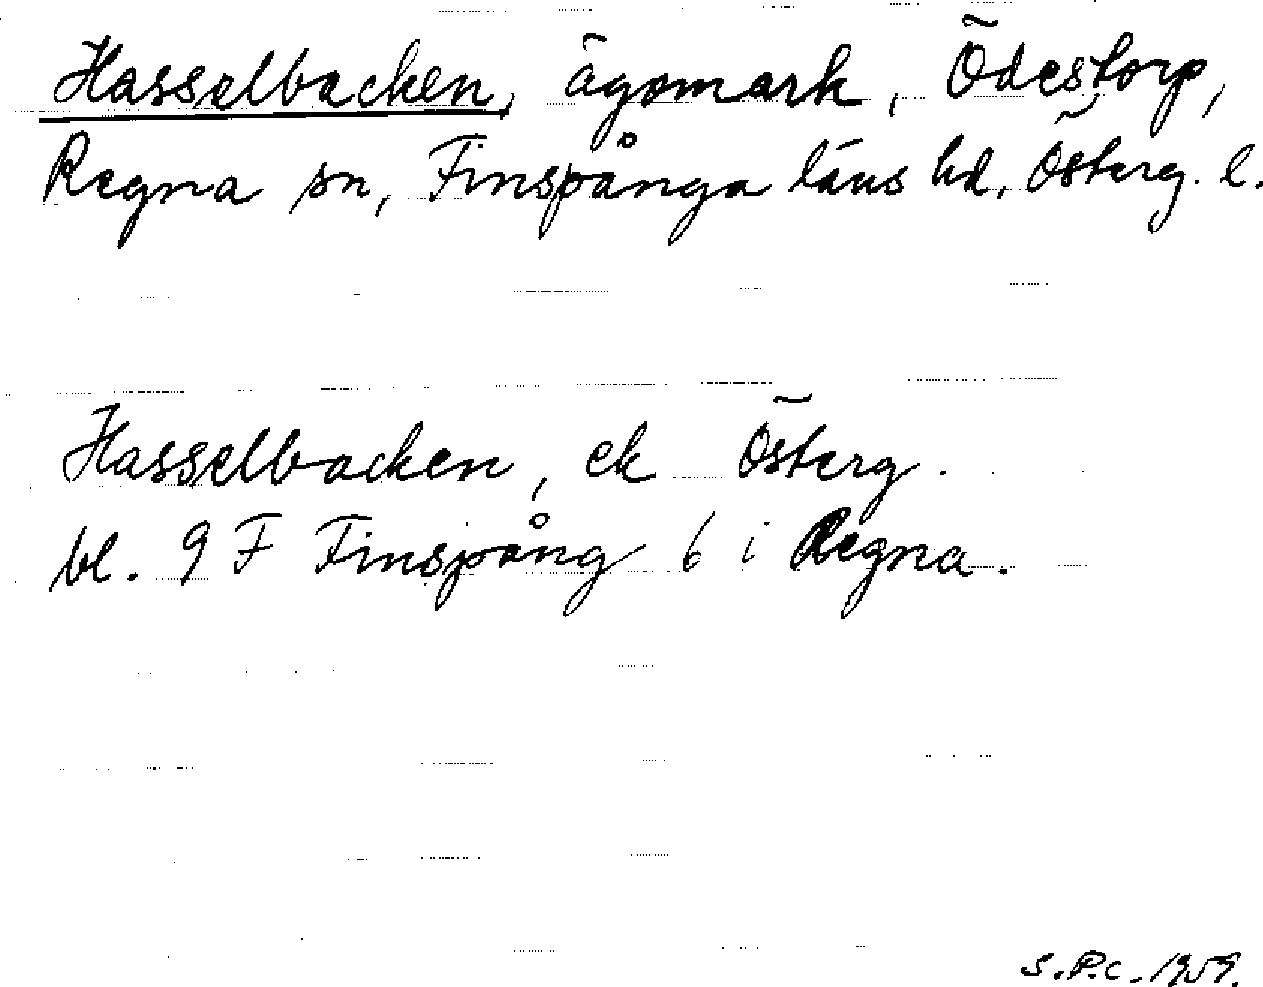 Hasselbacken, ägomark, Ödestorp,
Regna sn, Finspånga läns hd, Österg. l.
Hasselbacken, ek Österg.
bl. 9 F Finspång 6 i Regna.
S.P.C. 1959.